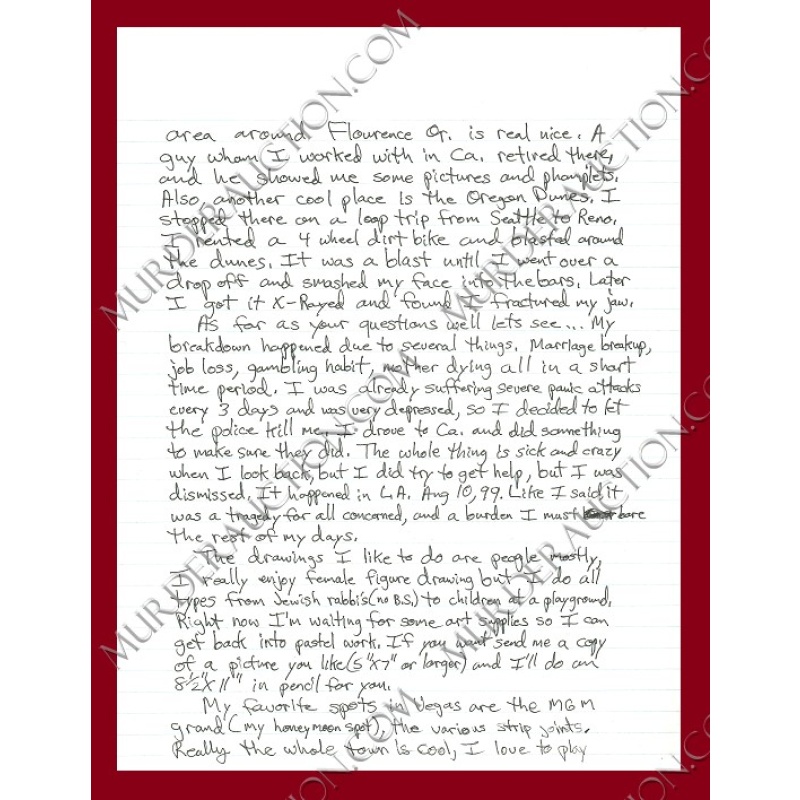 area around Flourence Or. is real nice. A
guy whom I worked with in Ca. retired there,
and he showed me some pictures and phamplets.
Also, another cool place is the Oregon Dunes. I
stopped there on a loop trip from Seattle to Reno.
I rented a 4 wheel dirt bike and blasted around
the dunes. It was a blast until I went over a
drop off and smashed my face into the bars. Later
I got it X-Rayed and found I fractured my jaw.
As far as your questions well lets see... My
breakdown happened due to several things. Marriage breakup,
job loss, gambling habit, mother dying all in a short
time period. I was already suffering severe panic attacks
every 3 days and was very depressed, so I decided to let
the police kill me. I drove to Ca. and did something
to make sure they did. The whole thing is sick and crazy
when I look back, but I did try to get help, but I was
dismissed. It happened in L.A. Aug 10, 99. Like I said, it
was a tragedy for all concerned, and a burden I must bare
the rest of my days.
The drawings I like to do are people mostly,
I really enjoy female figure drawing but I do all
types from Jewish rabbi's (no B.S.) to children at a playground.
Right now I'm waiting for some art supplies so I can
get back into pastel work. If you want send me a copy
of a picture you like (5"X7" or larger) and I'll do an
8½"X11" in pencil for you.
My favorite spots in Vegas are the MGM
grand (my honeymoon spot), the various strip joints.
Really the whole town is cool, I love to play
MURDERAUCTION.COM